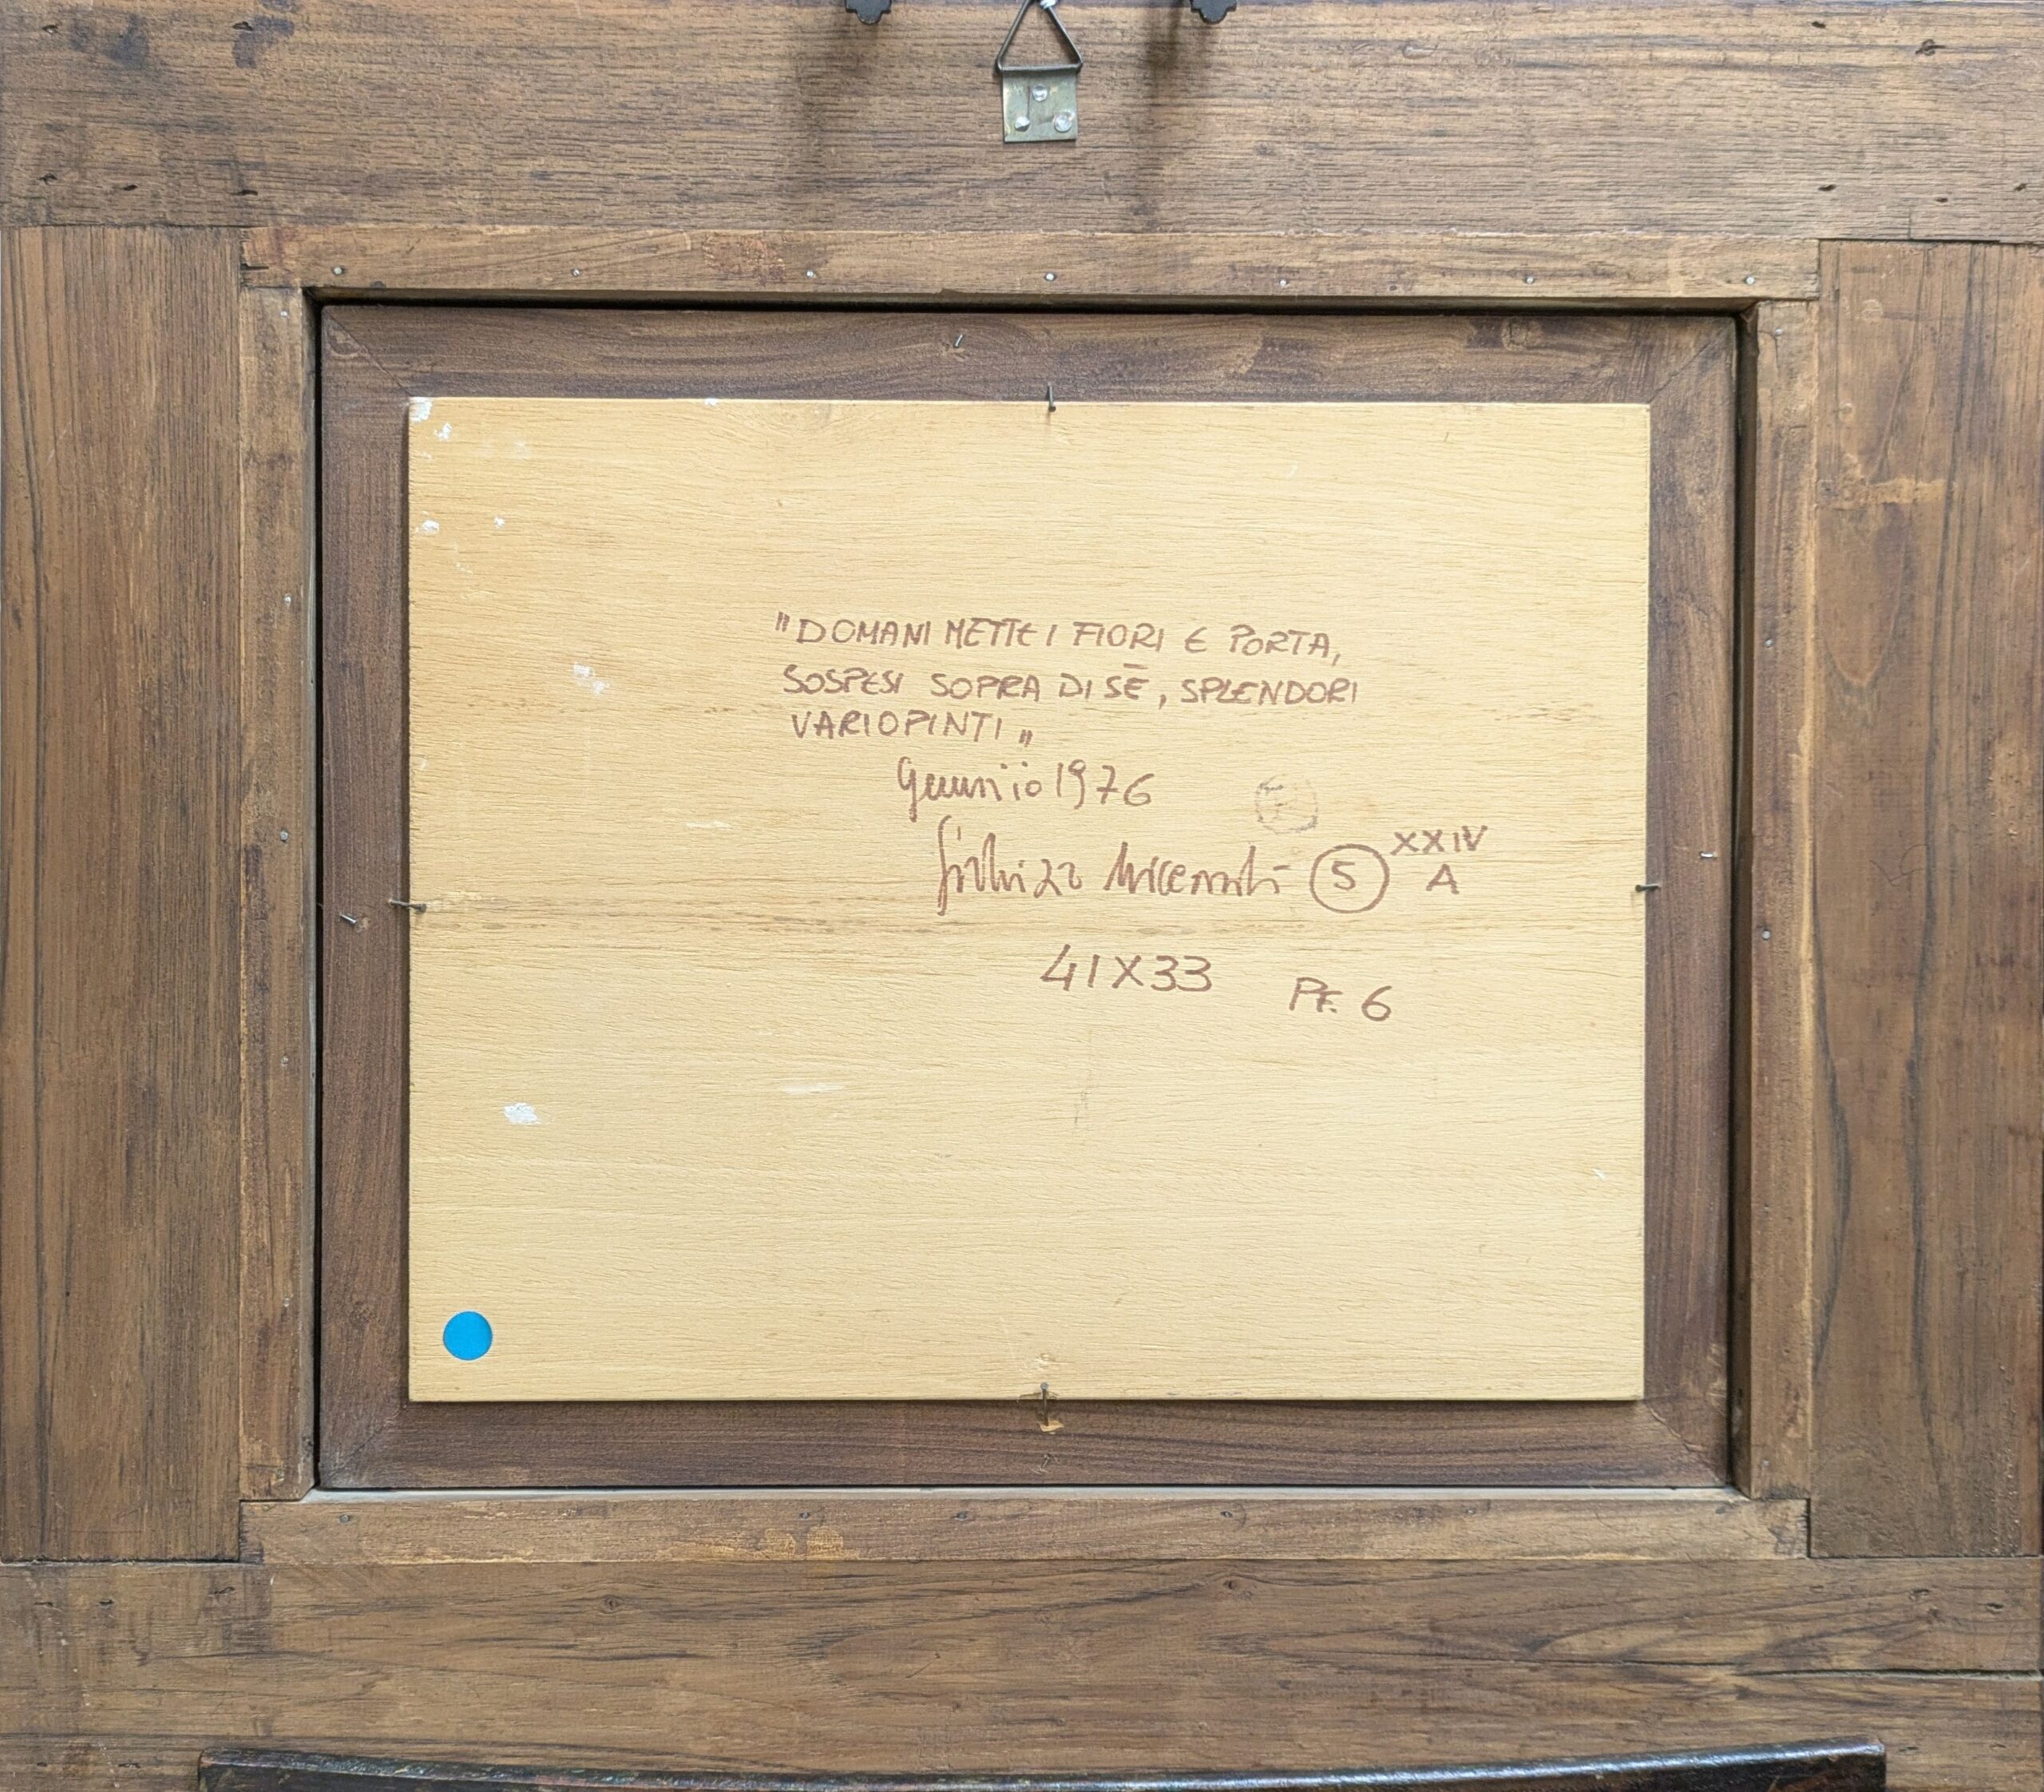 "DOMANI METTE I FIORI E PORTA,
SOSPESI SOPRA DI SĒ, SPLENDORI
VARIOPINTI„
Gennaio 1976
5 XXIV
A
41X33
PF. 6